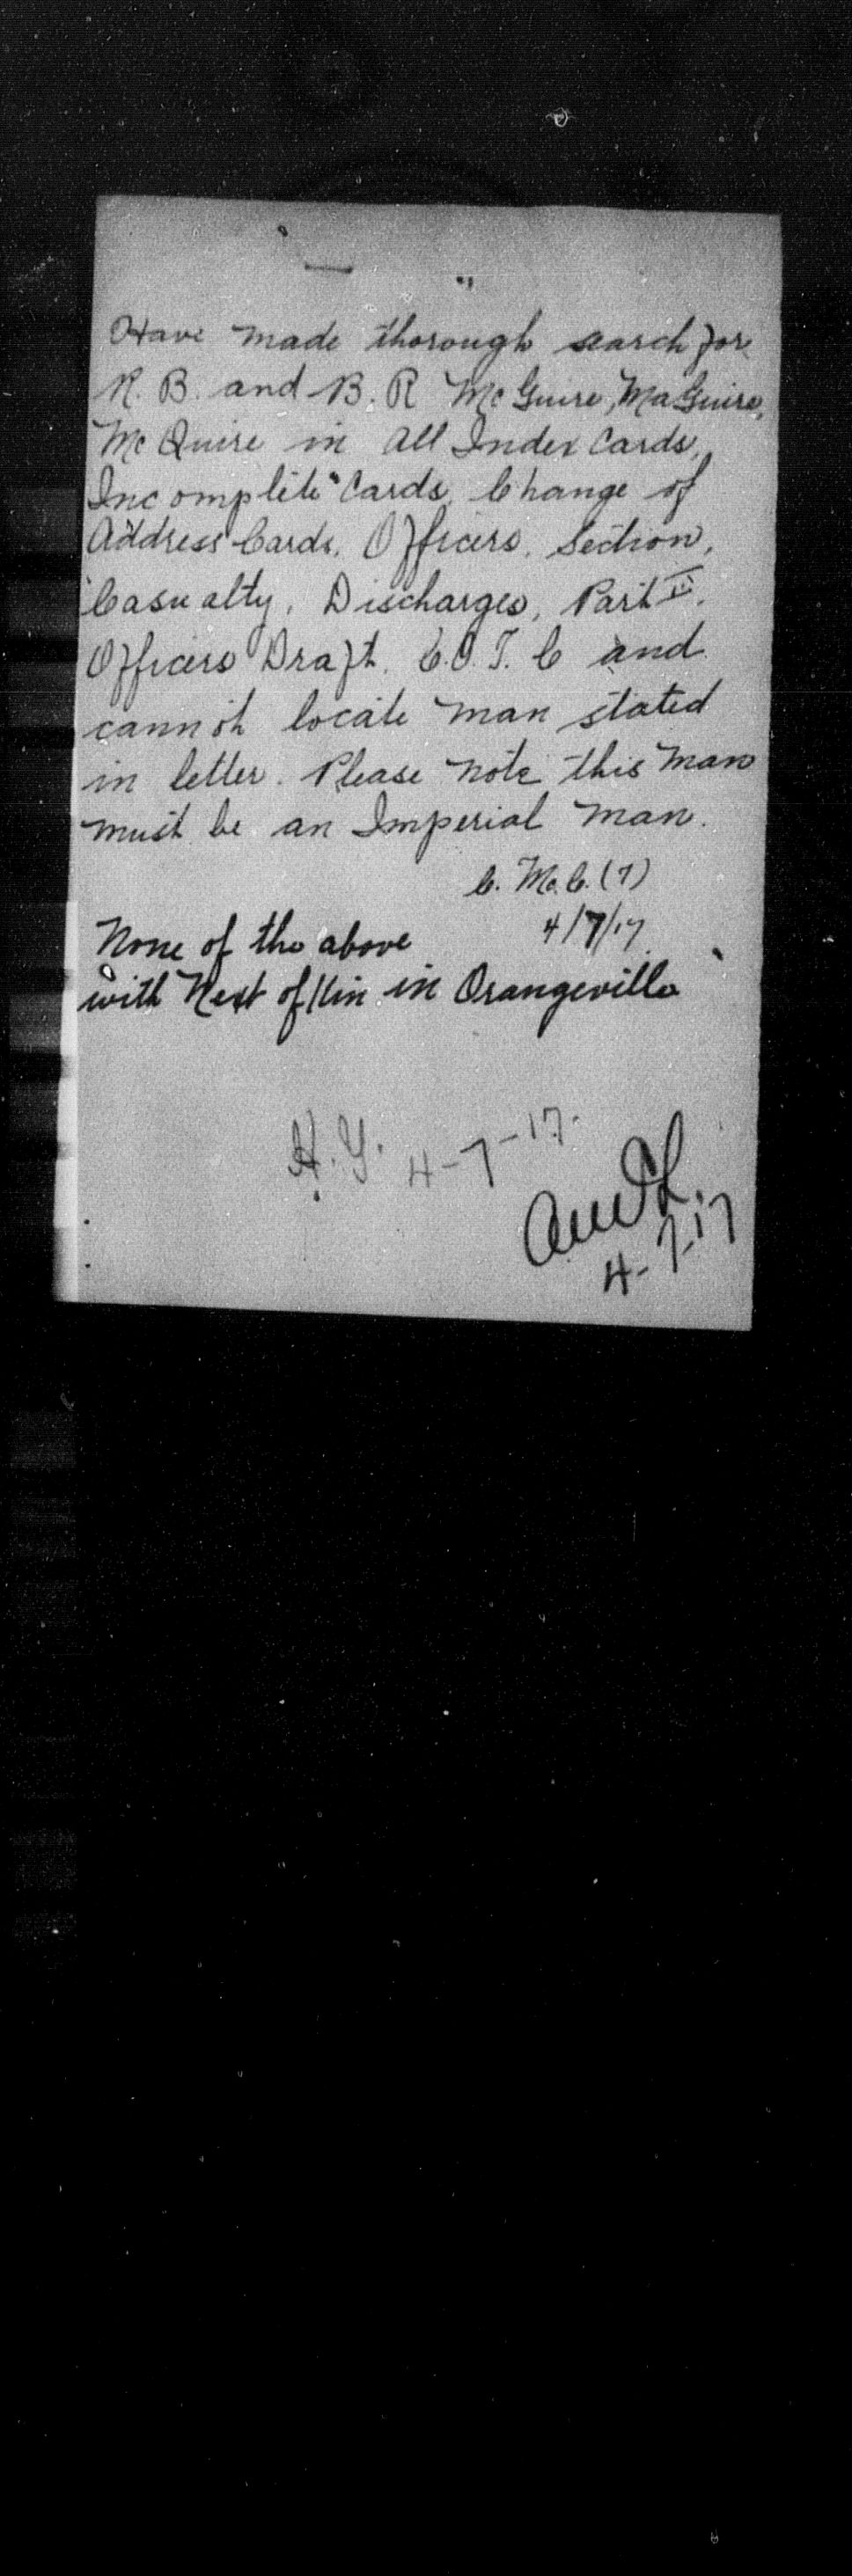 Have made thorough search for
R. B. and B. R McGuire, MaGuire,
McQuire in all Index Cards,
Incomplete Cards, Change of
Address Cards, Officers, Section,
Casualty, Discharges, Part II,
Officers Draft, C.O.T.C and
cannot locate man stated
in letter. Please note this man
must be an Imperial man.
C. Mc.C. (7)
4/7/17
None of the above
with Next of Kin in Orangeville
H.Y. 4-7-17.
4-7-17